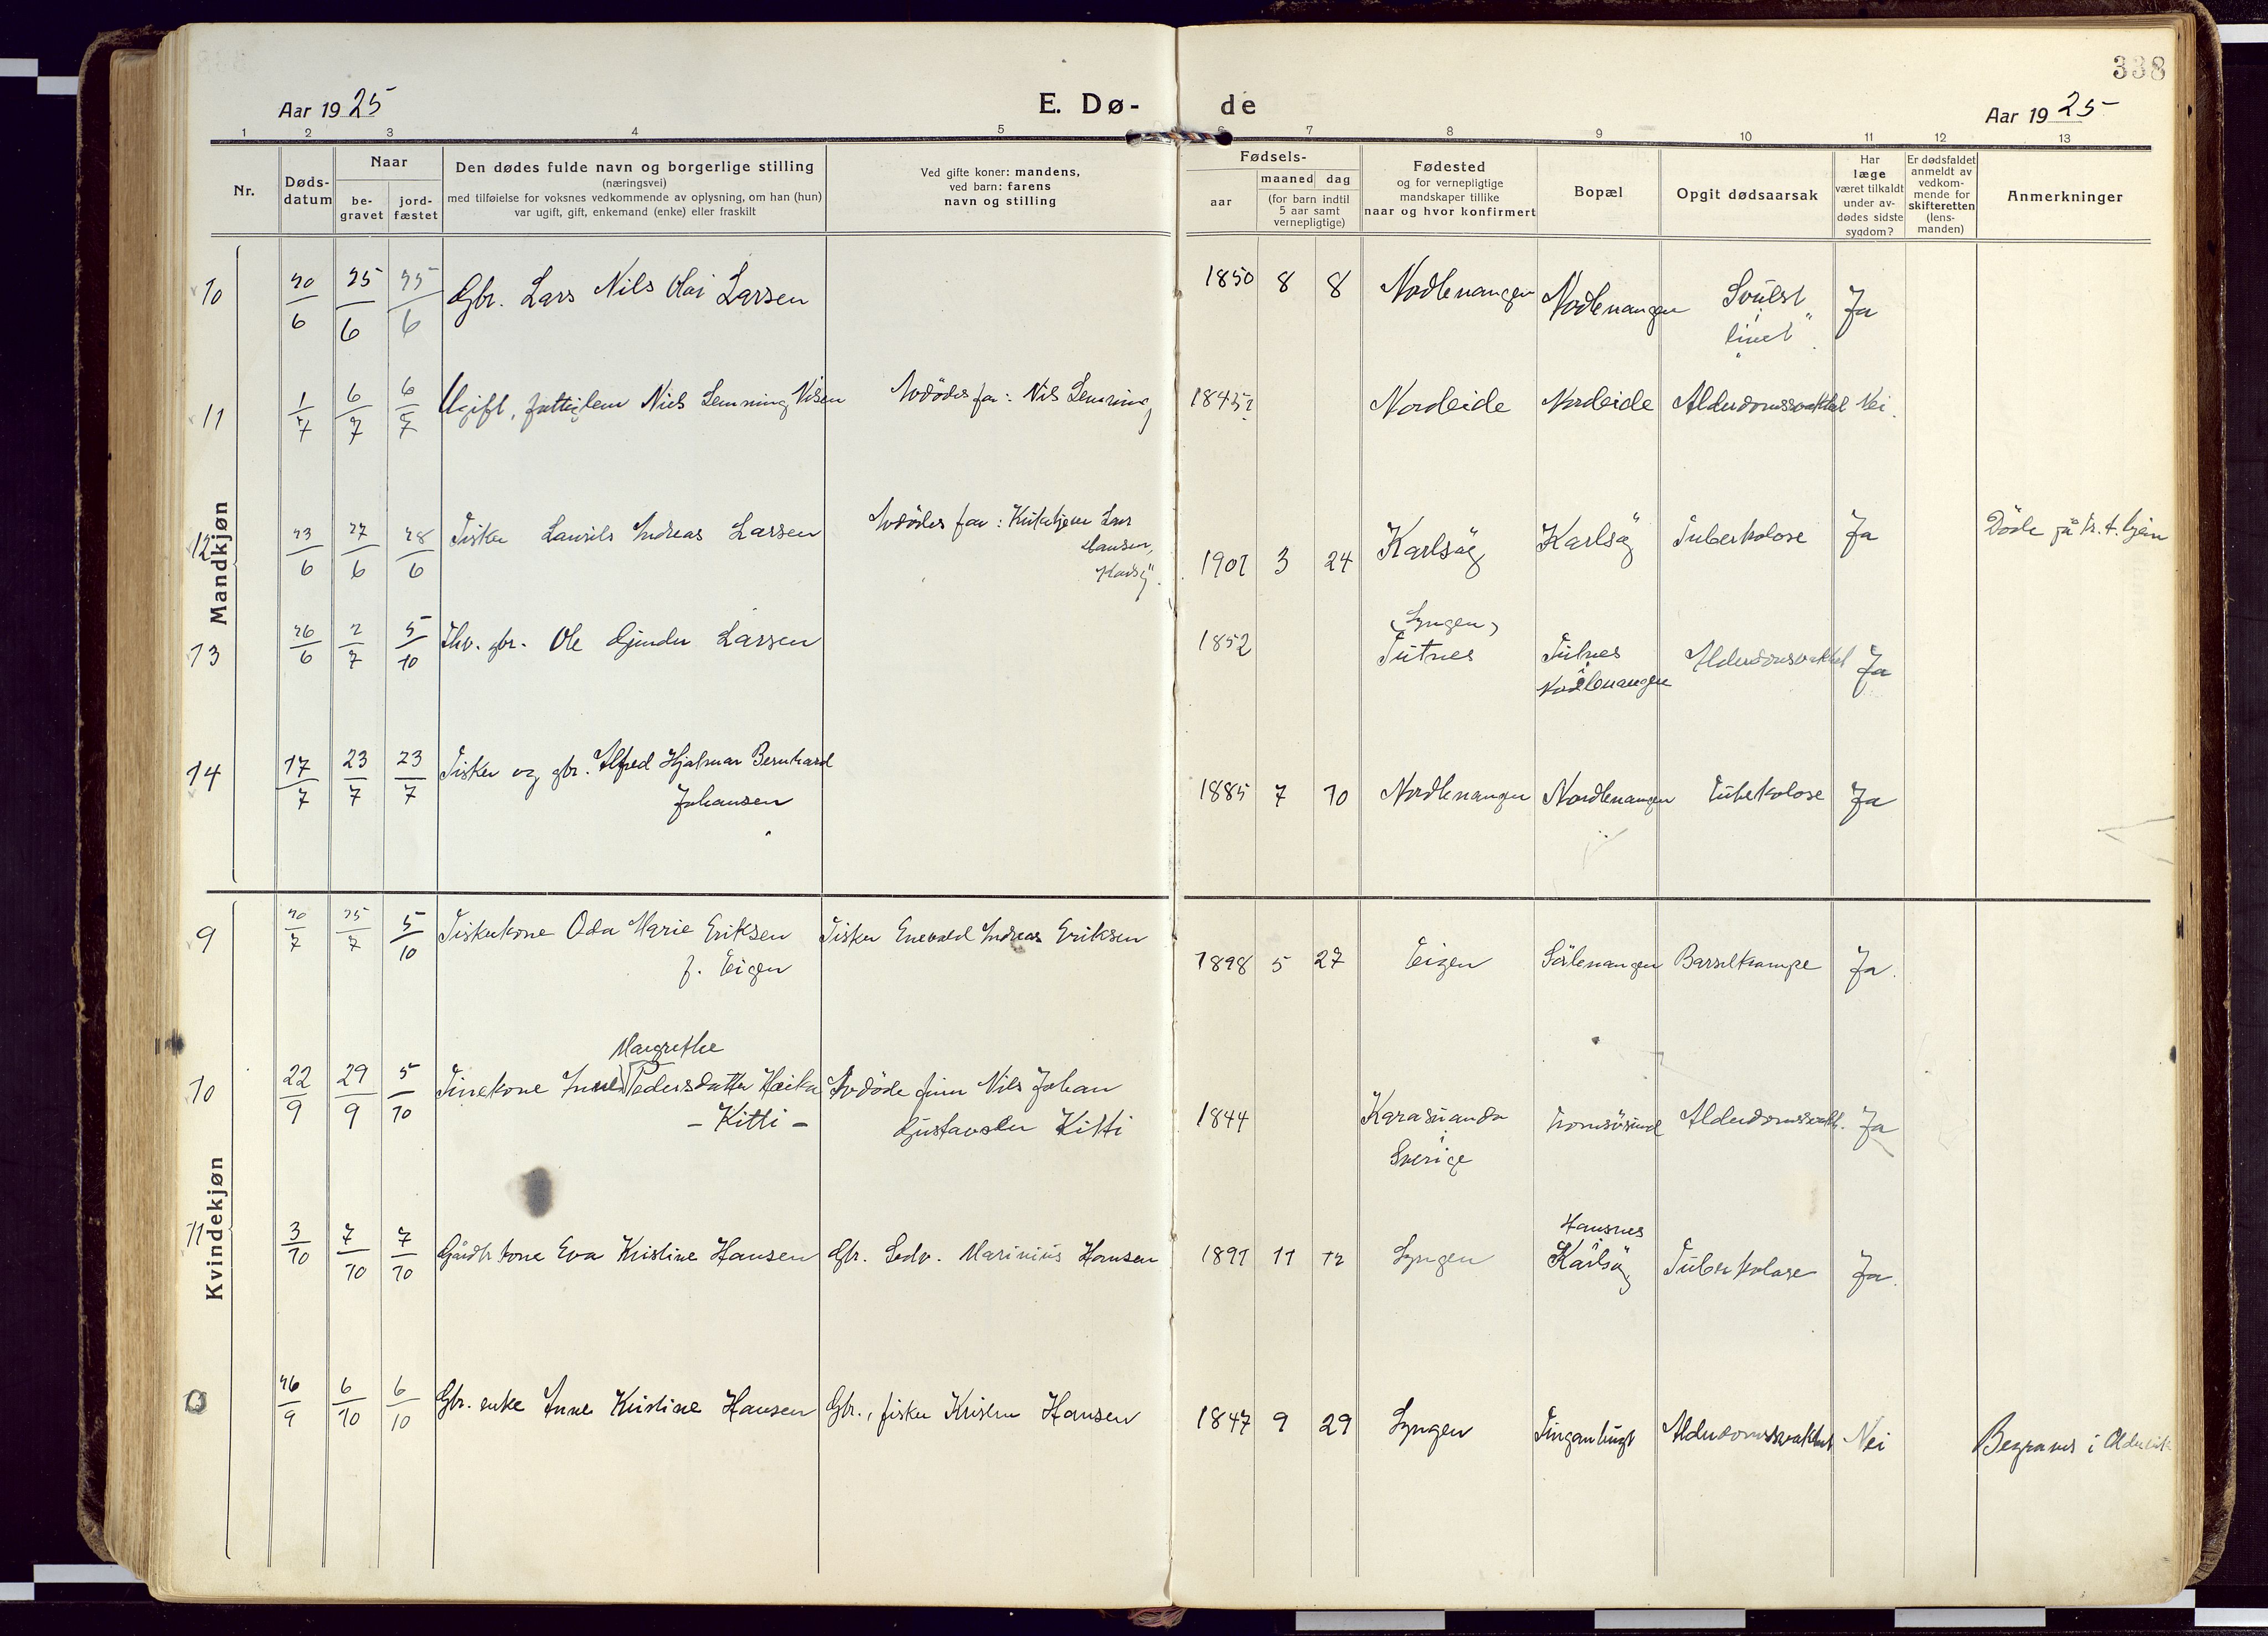 338
Aar 1925
E. Dø-
de
Aar 1925
1 2 3 4 5 6 7 8 9 10 11 12 13
Nr.
Døds-
datum
Naar
be-
gravet
jord-
fæstet
Den dødes fulde navn og borgerlige stilling
(næringsvei)
med tilføielse for voksnes vedkommende av oplysning, om han (hun)
var ugift, gift, enkemand (enke) eller fraskilt
Ved gifte koner: mandens,
ved barn: farens
navn og stilling
Fødsels-
aar
maaned dag
(for barn indtil
5 aar samt
vernepligtige)
Fødested
og for vernepligtige
mandskaper tillike
naar og hvor konfirmert
Bopæl
Opgit dødsaarsak
Har
læge
været tilkaldt
under av-
dødes sidste
sygdom?
Er dødsfaldet
anmeldt av
vedkom-
mende for
skifteretten
(lens-
manden)
Anmerkninger
Mandkjøn
10 20/6 25/6 25/6 Gbr. Lars Nils Olai Larsen 1850 8 8 Nordlenangen Nordlenangen Svulst Ja
i
livet
11 1/7 6/7 6/7 Ugift, fattiglem Niels Lemning Nilsen Avdødes far: Nils Lemning 1845? Nordeide Nordeide Alderdomssvakhet Nei.
12 23/6 27/6 28/6 Fisker Laurits Andreas Larsen Avdødes far: Kirketjener Lars
Hansen,
Karlsøy. 1901 3 24 Karlsøy Karlsøy Tuberkolose Ja Døde på
13 26/6 2/7 5/10 Fhv. gbr. Ole Gunder Larsen 1852 (Lyngen)
Tutnes Tutnes
i
Nordlenangen Alderdomssvakhet Ja
14 17/7 23/7 23/7 Fisker og gbr. Alfred Hjalmar Bernhard
Johansen 1885 7 10 Nordlenangen Nordlenangen Tuberkolose Ja
Kvindekjøn
9 20/7 25/7 5/10 Fiskerkone Oda Marie Eriksen
f. Eigen Fisker Enevald Andreas Eriksen 1898 5 27 Eigen Sørlenangen Barselkrampe Ja.
Margrethe
10 22/9 29/9 5/10 Finekone Anne Pedersdatter
- Kitti - Avdøde finn Nils Johan
Gustavsen Kitti 1844 Karasuando
i
Sverige Tromsøsund Alderdomssvakh. Ja
11 3/10 7/10 7/10 Gårdbr. kone Eva Kristine Hansen Gbr. Edv. Marinius Hansen 1891 11 12 Lyngen Hansnes
i
Karlsøy Tuberkolose Ja.
26/9 6/10 6/10 Gbr. enke Anne Kristine Hansen Gbr., fisker Kristen Hansen 1847 9 29 Lyngen Finganbugt Alderdomssvakhet Nei Begraves i